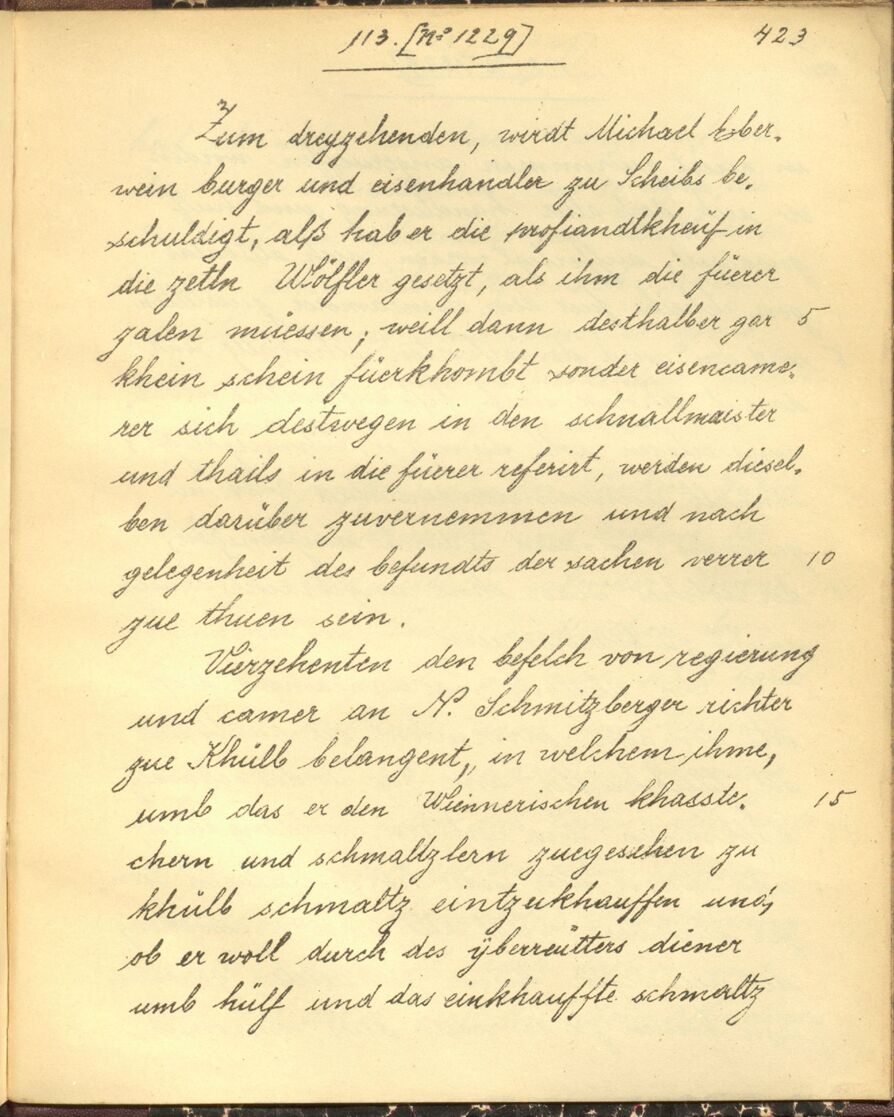 113. [No 1229]
423
Zum dreyzehenden, wirdt Michael Eber-
wein burger und eisenhandler zu Scheibs be-
schuldigt, alß hab er die profiandtkheüf in
die zetln Wölfler gesetzt, als ihm die füerer
zalen müessen; weill dann desthalber gar 5
khein schein füerkhombt sonder eisencame-
rer sich destwegen in den schnallmaister
und thails in die füerer referirt, werden diesel-
ben darüber zuvernemmen und nach
gelegenheit des befundts der sachen verrer 10
zue thuen sein.
Vierzehenten den befelch von regierung
und camer an N. Schmitzberger richter
zue Khülb belangent, in welchem ihme,
umb das er den Wiennerischen khässte- 15
chern und schmaltzlern zuegesehen zu
khülb schmaltz eintzukhauffen und,
ob er woll durch des yberreütters diener
umb hülf und das einkhauffte schmaltz